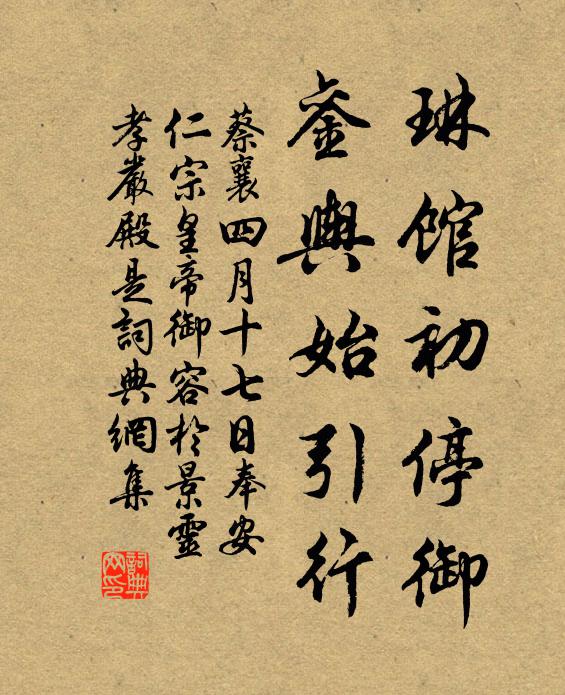 琳館初停御
銮輿始引行
蔡襄四月十七日奉安
仁宗皇帝御容於景靈
孝嚴殿是詞典網集
詞典
网印